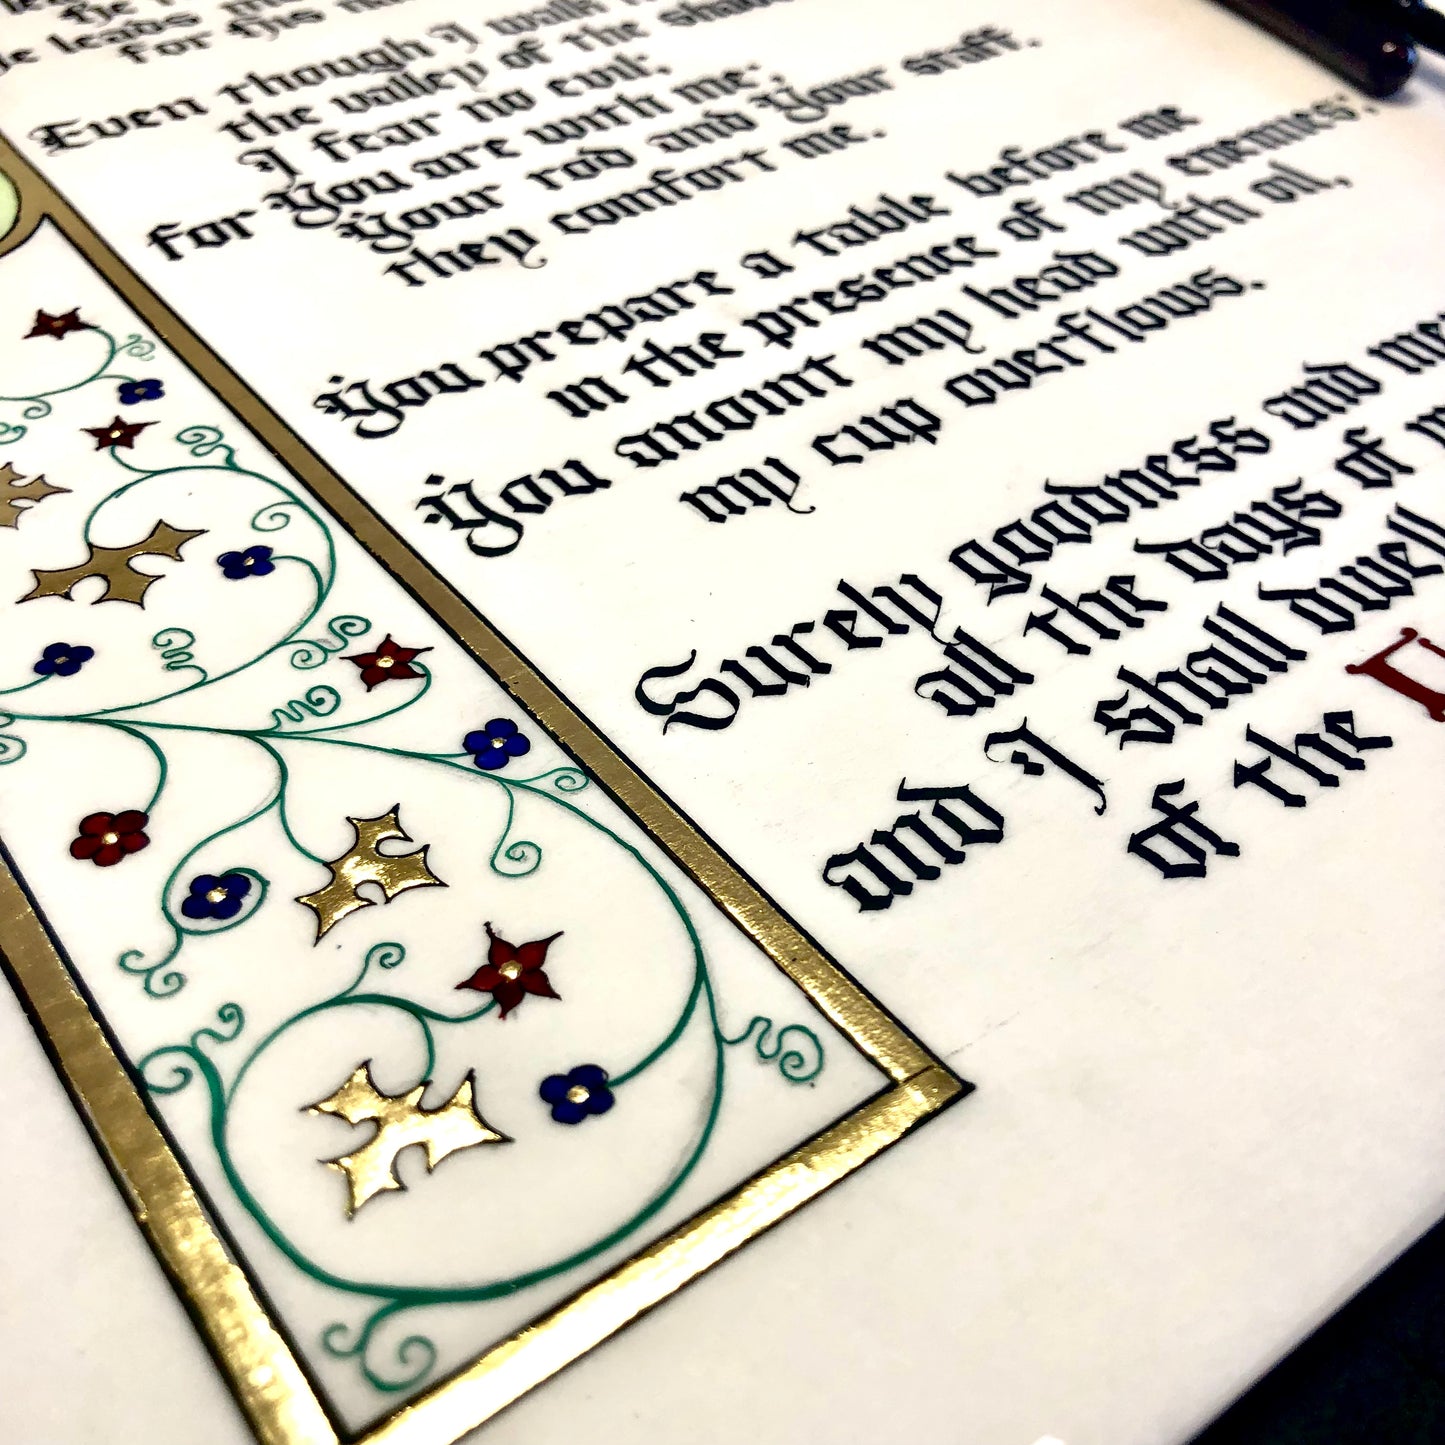 He
leads
for His
Even though I walk
the valley of the
I fear no evil;
for You are with me;
Your rod and Your staff,
they comfort me.
You prepare a table before me
in the presence of my enemies;
You anoint my head with oil,
my cup overflows.
Surely goodness and
all the days of
and I shall dwell
of the